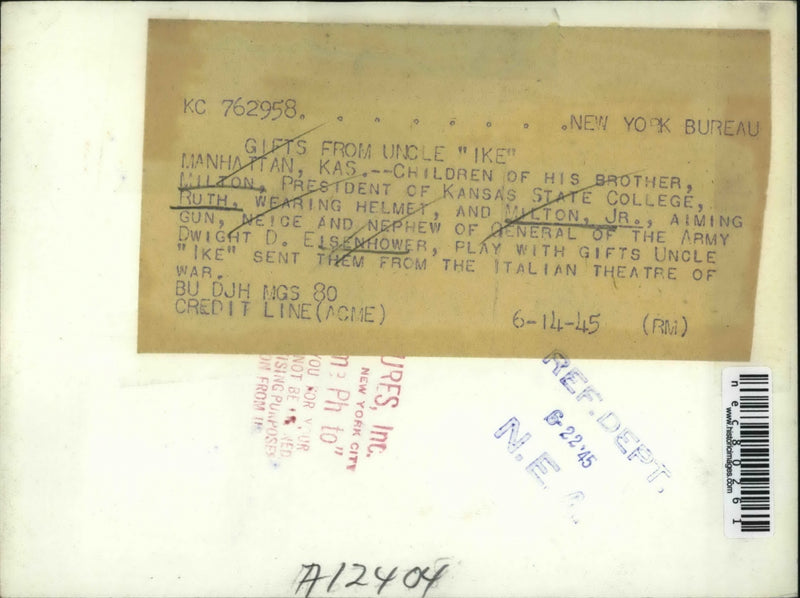 KC 762958. . . . . . . . .NEW YORK BUREAU
GIFTS FROM UNCLE "IKE"
MANHATTAN, KAS.--CHILDREN OF HIS BROTHER,
MILTON, PRESIDENT OF KANSAS STATE COLLEGE,
RUTH, WEARING HELMET, AND MILTON, JR., AIMING
GUN, NEICE AND NEPHEW OF GENERAL OF THE ARMY
DWIGHT D. EISENHOWER, PLAY WITH GIFTS UNCLE
"IKE" SENT THEM FROM THE ITALIAN THEATRE OF
WAR.
BU DJH MGS 80
CREDIT LINE(ACME) 6-14-45 (RM)
URES, Inc.
NEW YORK CITY
to"
YOU FOR YOUR
NOT BE
ISING PURPOSES
ON FROM
REF. DEPT.
6-22-45
N. E. A.
A12404
www.historicimages.com
nec80261